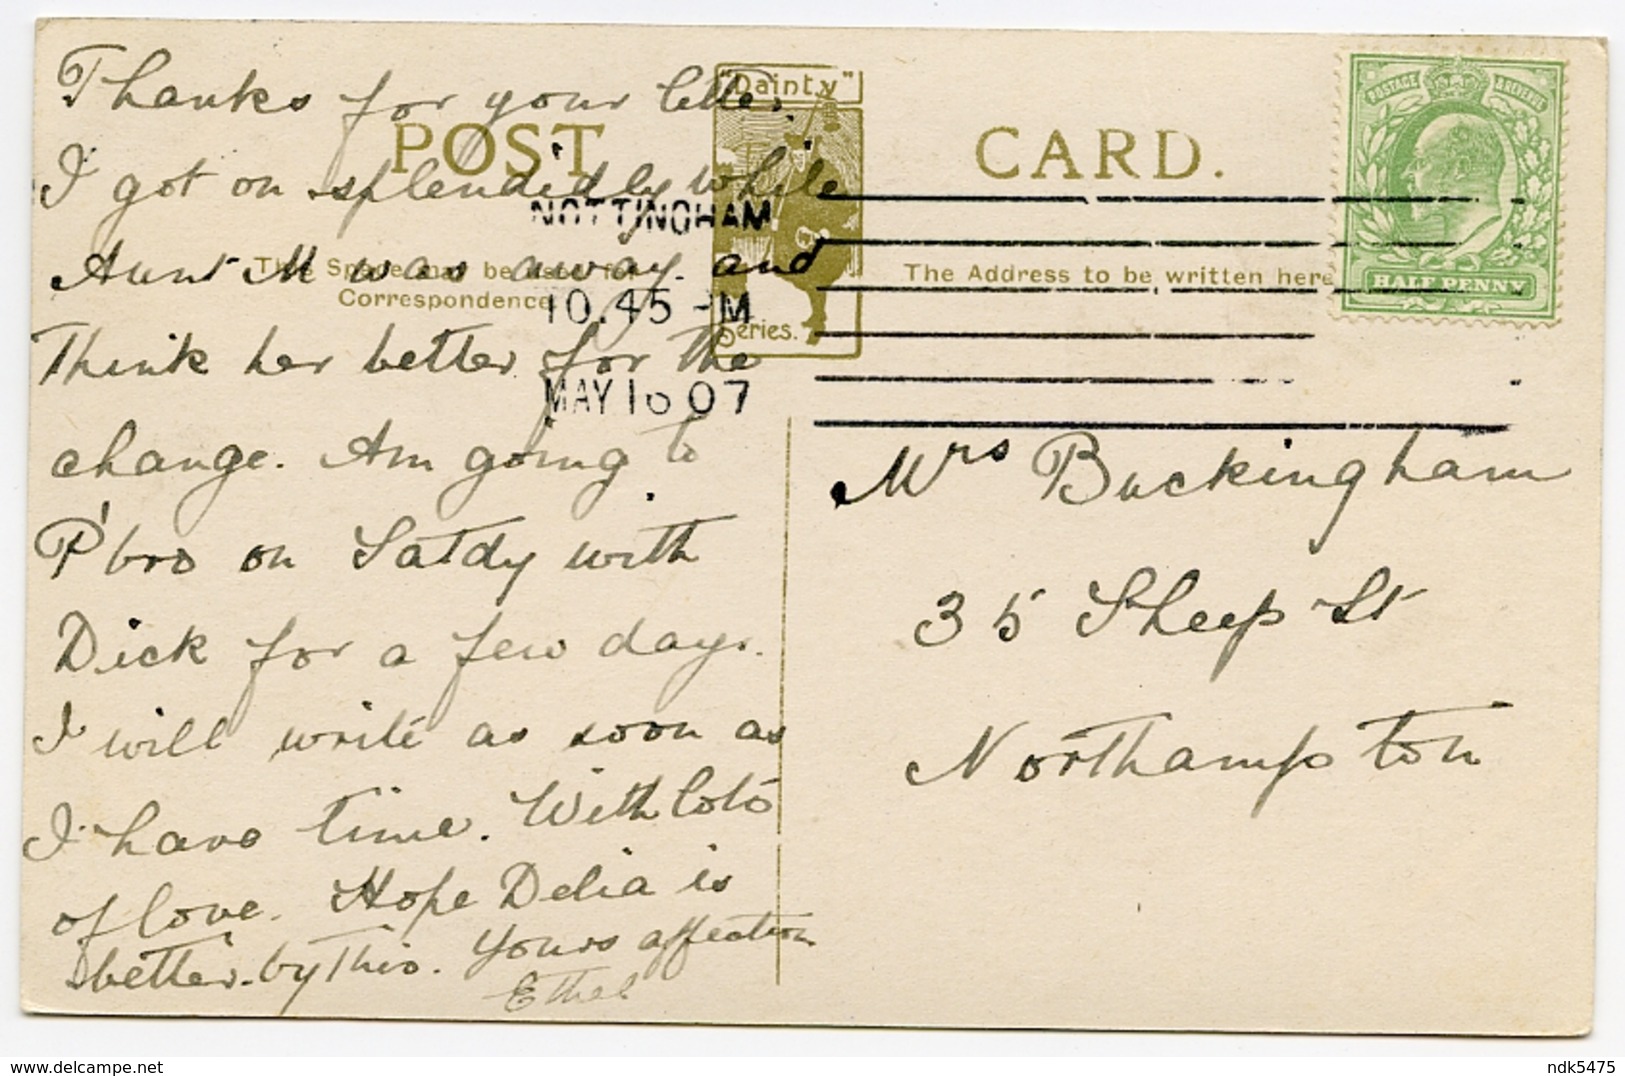 Thanks for your letter.
I got on splendidly while
Aunt M was away and
Think her better for the
change. Am going to
P'bro on Satdy with
Dick for a few days.
I will write as soon as
I have time. With lots
of love. Hope Delia is
better by this. Yours affection
Ethel
POST CARD.
"Dainty"
Series.
This Space may be used for
Correspondence
The Address to be written here
NOTTINGHAM
10.45 -M
MAY 16 07
POSTAGE & REVENUE
HALF PENNY
Mrs Buckingham
35 Sheep St
Northampton
ndk5475